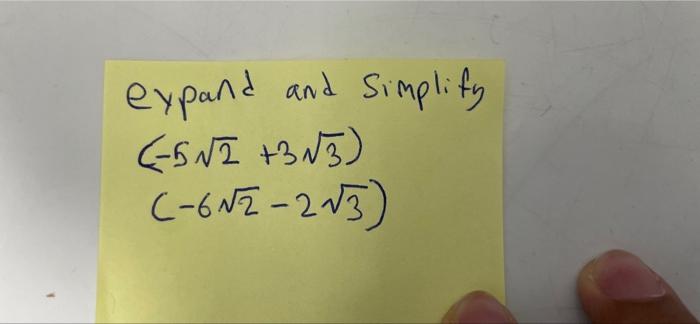 expand and Simplify
(-5√2 +3√3)
(-6√2 - 2√3)